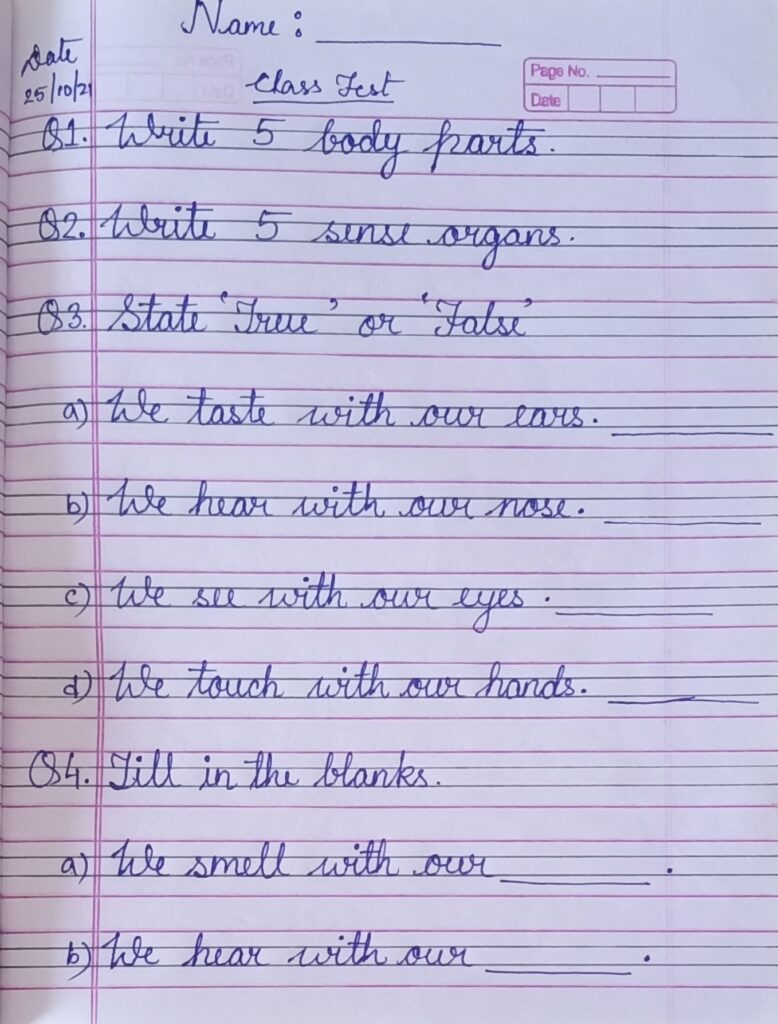 Name : ________
Date
25/10/21
Class Test
Page No. ________
Date
Q1. Write 5 body parts.
Q2. Write 5 sense organs.
Q3. State 'True' or 'False'
a) We taste with our ears. ________
b) We hear with our nose. ________
c) We see with our eyes. ________
d) We touch with our hands. ________
Q4. Fill in the blanks.
a) We smell with our ________.
b) We hear with our ________.